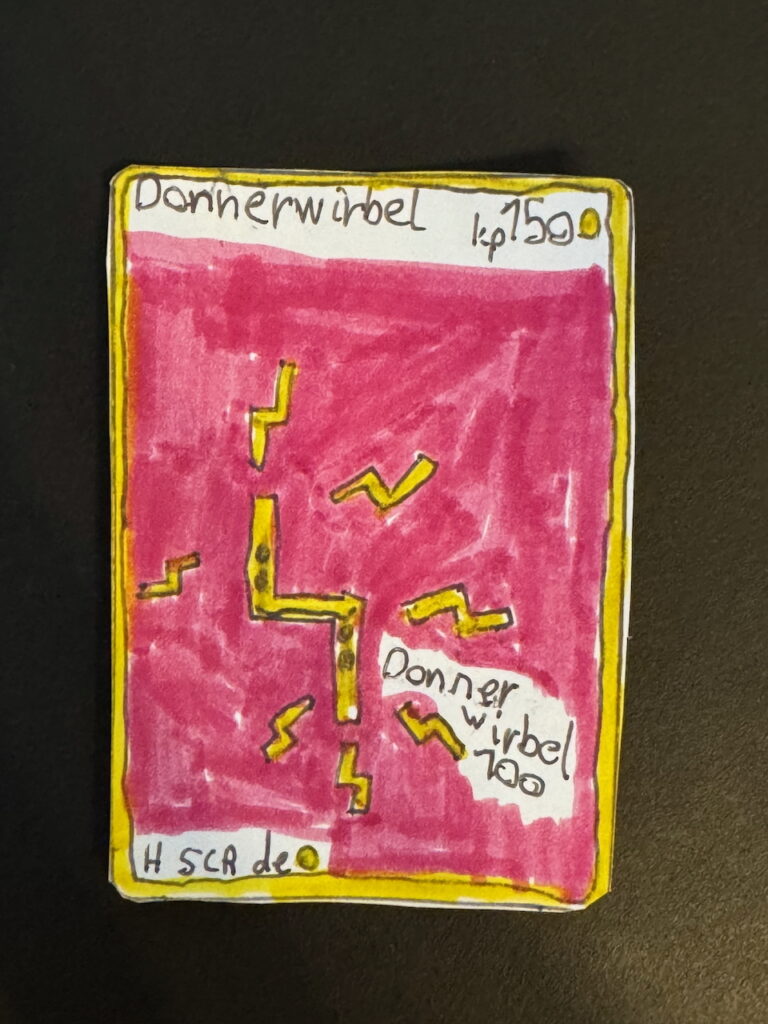 Donnerwirbel
kp 150
Donner
wirbel
100
H SCA de